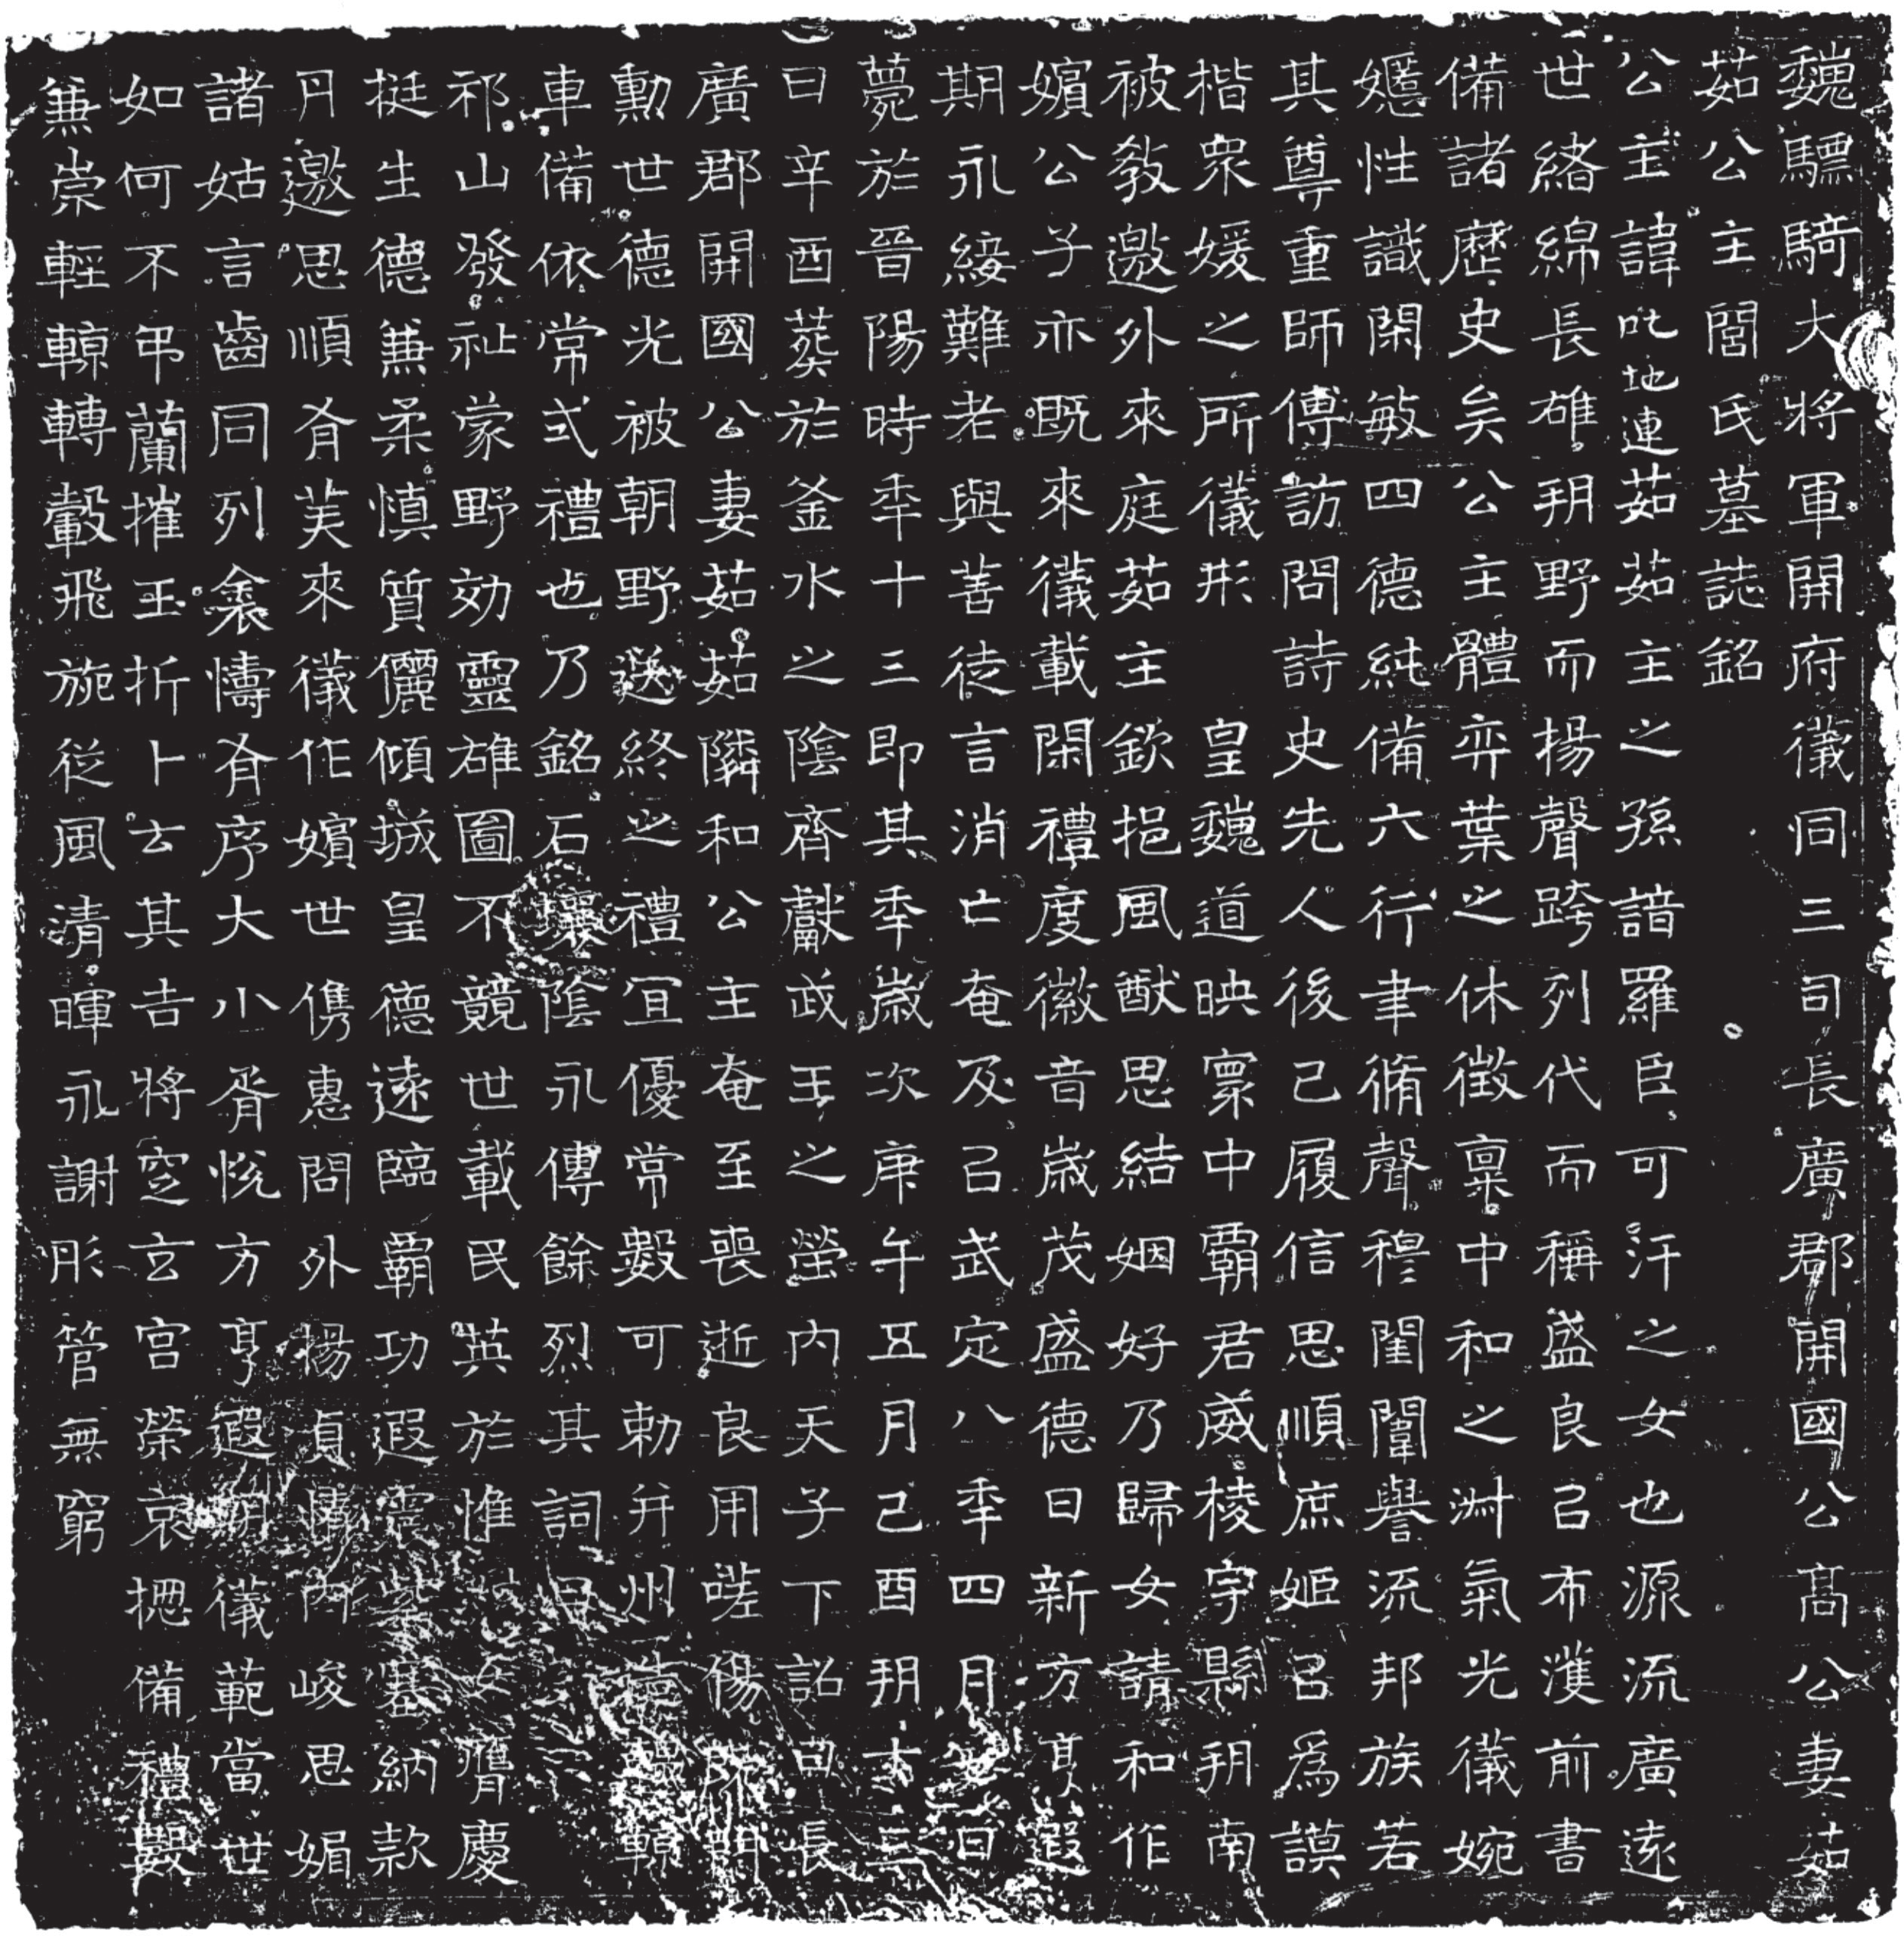 魏驃騎大將軍開府儀同三司長廣郡開國公髙公妻茹
茹公主閭氏墓誌銘
公主諱叱地連茹茹主之孫諳羅臣可汗之女也源流廣遠
世緒綿長雄朔野而揚聲跨列代而稱盛良㠯布濩前書
備諸歷史矣公主體弈葉之休徵稟中和之淑氣光儀婉
嬺性識閑敏四德純備六行聿脩聲穆閨闈譽流邦族若
其尊重師傅訪問詩史先人後己履信思順庶姬㠯為謨
楷衆媛之所儀形　皇魏道映寰中霸君威棱宇縣朔南
被敎邀外來庭茹主欽挹風猷思結姻好乃歸女請和作
嬪公子亦既來儀載閑禮度徽音歲茂盛德日新方亨遐
期永綏難老與善徒言消亡奄及㠯武定八秊四月七日
薨於晉陽時秊十三即其秊歲次庚午五月己酉朔十三
日辛酉葬於釜水之陰齊獻武王之塋內天子下詔曰長
廣郡開國公妻茹茹隣和公主奄至喪逝良用嗟傷既門
勳世德光被朝野送終之禮宜優常數可勅并州造轀輬
車備依常式禮也乃銘石壤陰永傳餘烈其詞曰
祁山發祉蒙野効靈雄圖不競世載民英於惟女膺慶
挺生德兼柔慎質儷傾城皇德遠臨霸功遐震紫塞納款
丹邀思順有美來儀作嬪世儁惠問外揚貞情內峻思媚
諸姑言齒同列衾幬有序大小胥悅方亨遐期儀範當世
如何不弔蘭摧玉折卜云其吉將窆玄宮榮哀揔備禮數
兼崇輕輬轉轂飛旐從風清暉永謝彤管無窮